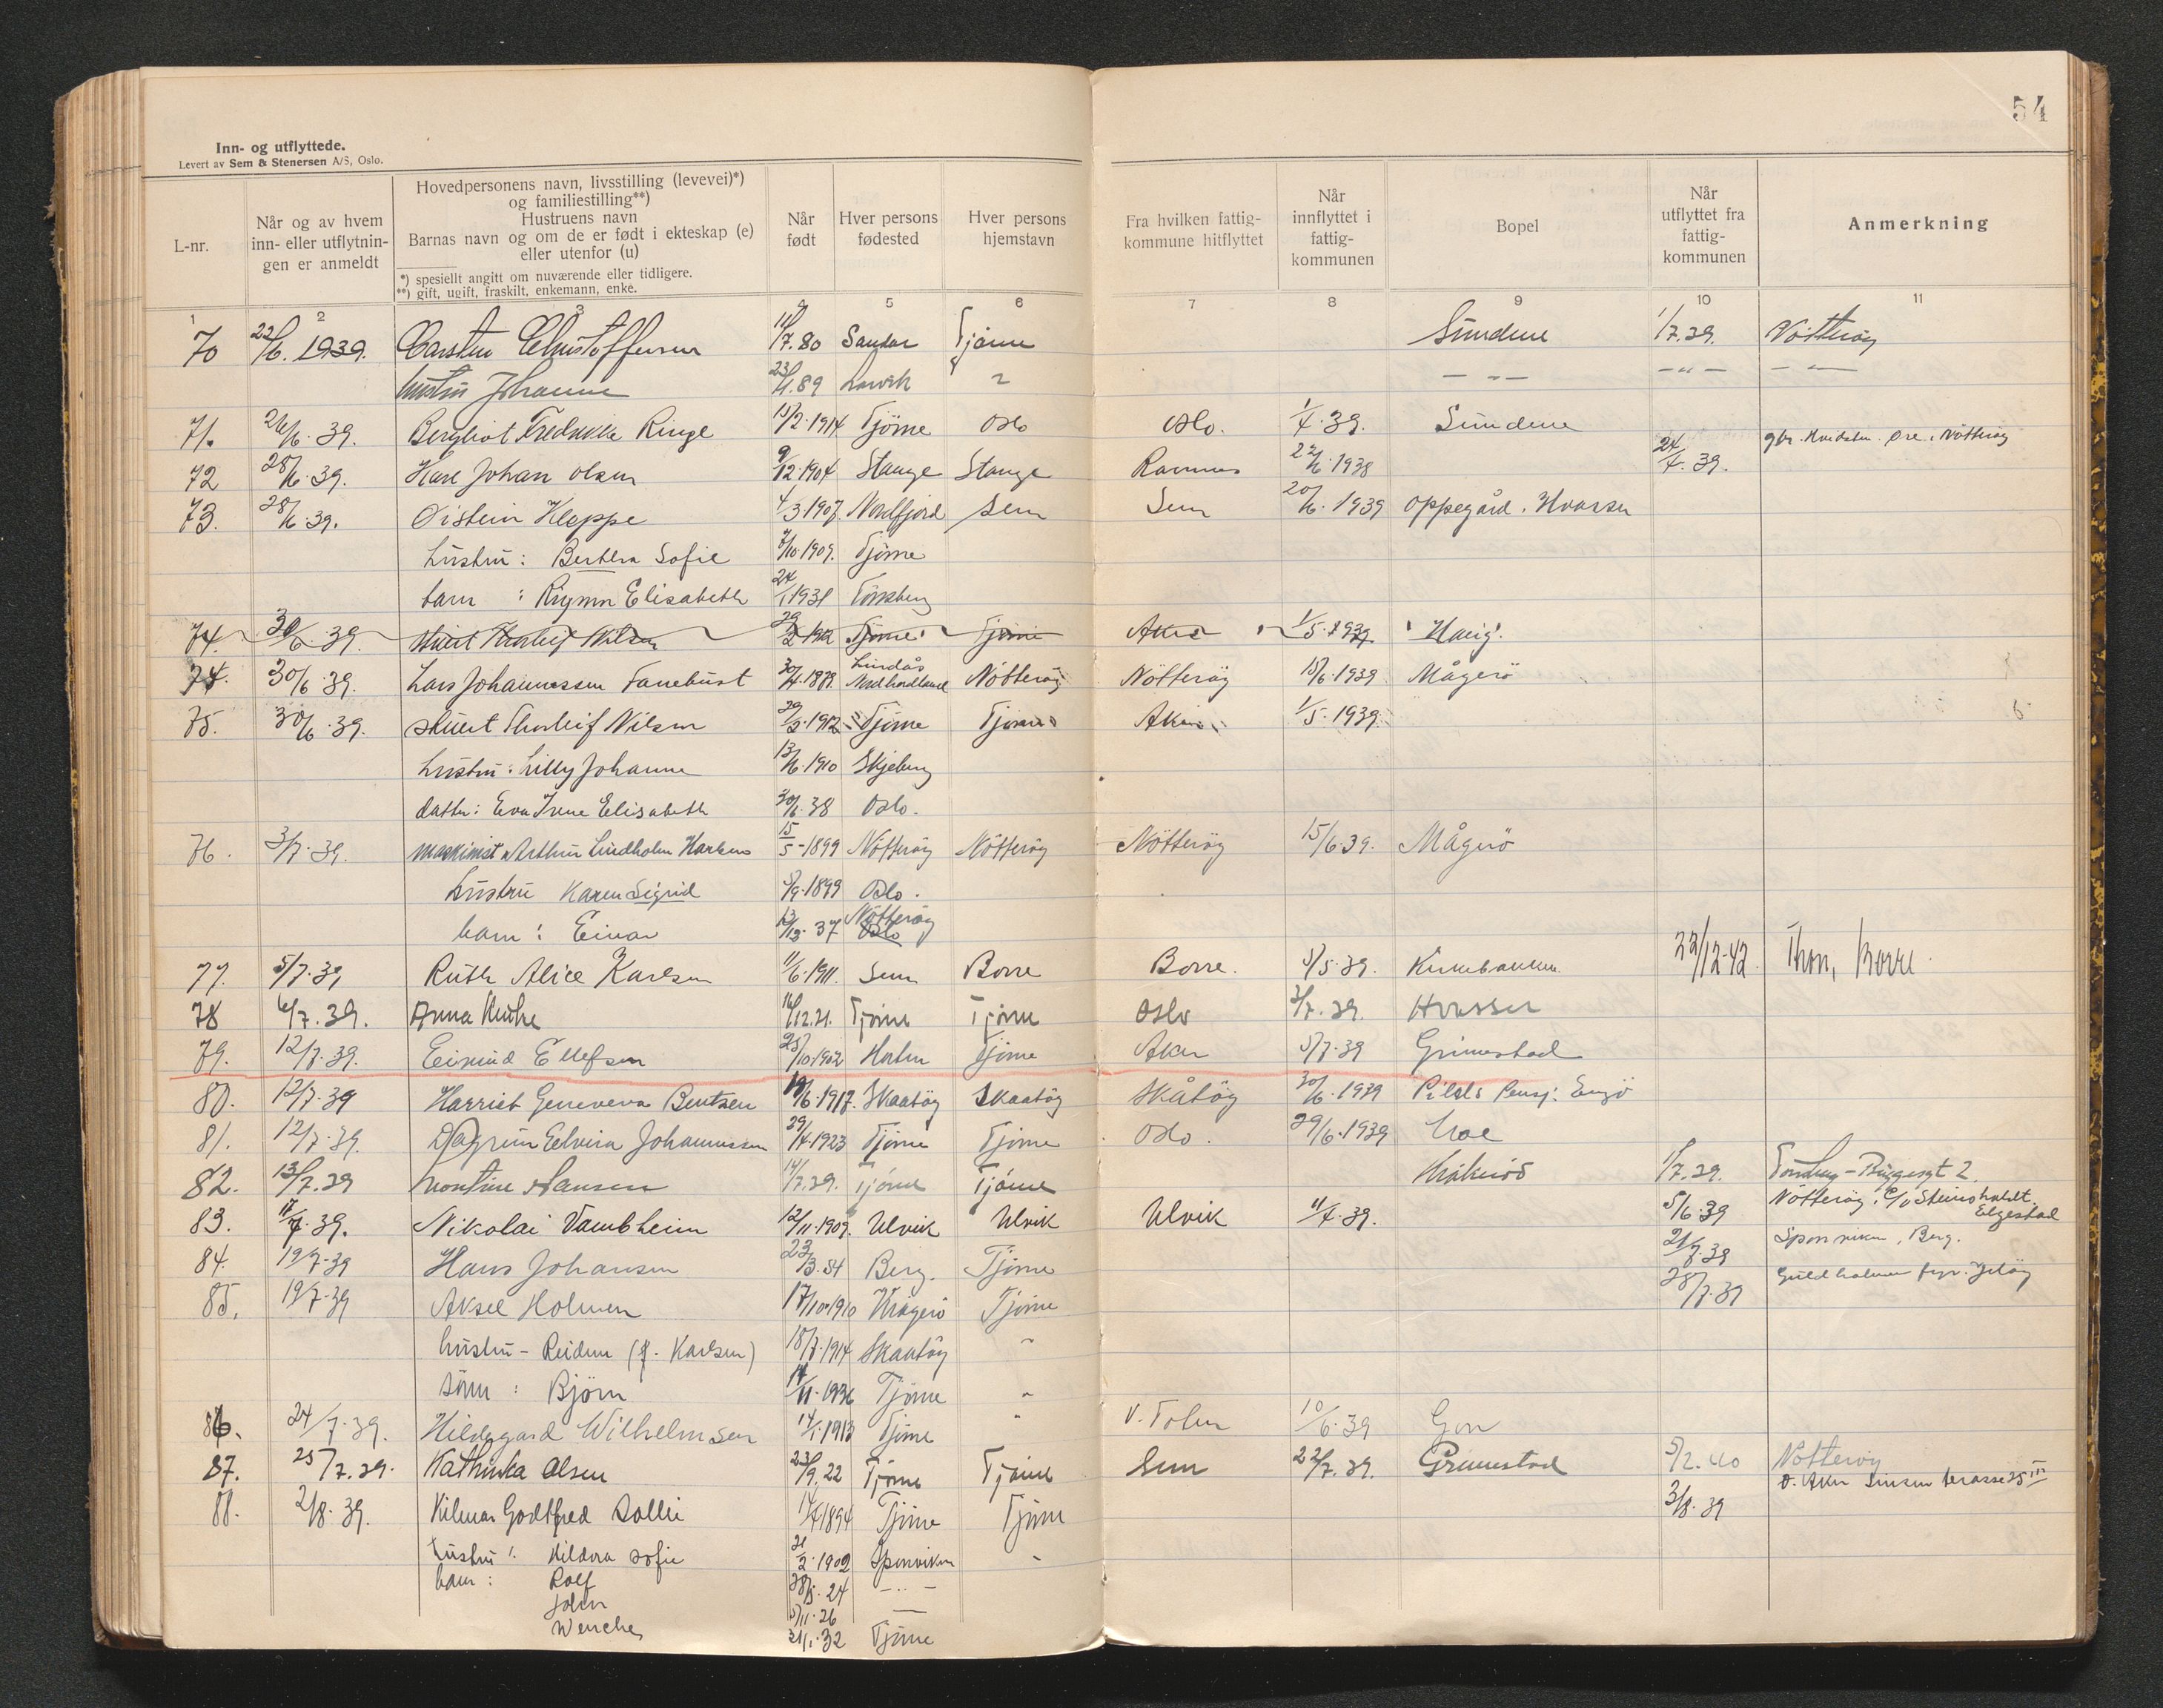 54
Inn- og utflyttede.
Levert av Sem & Stenersen A/S, Oslo.
L-nr.
Når og av hvem inn- eller utflytningen er anmeldt
Hovedpersonens navn, livsstilling (levevei)*)
og familiestilling**)
Hustruens navn
Barnas navn og om de er født i ekteskap (e)
eller utenfor (u)
*) spesiellt angitt om nuværende eller tidligere.
**) gift, ugift, fraskilt, enkemann, enke.
Når født
Hver persons fødested
Hver persons hjemstavn
Fra hvilken fattigkommune hitflyttet
Når innflyttet i fattigkommunen
Bopel
Når utflyttet fra fattigkommunen
Anmerkning
1 2 3 4 5 6 7 8 9 10 11
70 22/6. 1939. Carsten Christoffersen 11/7.80 Sandar Tjöme Sundene 1/7.39. Nötteröy
hustru Johanne 23/4.89 Larvik " — " — — " — — " —
71. 26/6.39. Bergliot Fredrikke Ringe 15/2.1914 Tjöme Oslo Oslo. 1/4.39. Sundene
72 28/6.39. Karl Johan Olsen 9/12.1904 Stange Stange Ramnes 22/6.1938 24/4.39. Nötteröy
73. 28/6.39. Öistein Kleppe 4/3 1907 Nordfjord Sem Sem 20/6.1939 Oppegård. Hvasser
hustru: Berthra Sofie 7/10 1909. Tjöme
barn : Rigmor Elisabeth 24/1 1931 Tönsberg
74. 30/6.39. Sivert Thorleif Nilsen 29/3 1912 Tjöme Tjöme Aker 1/5.1939 Haug.
74. 30/6.39. Lars Johannessen Fanebust 30/4.1879. Lindås Nordhordland Nötteröy Nötteröy 15/6.1939 Mågerö
75. 30/6.39. Sivert Thorleif Nilsen 29/3.1912 Tjöme Tjöme Aker 1/5.1939.
hustru: Lilly Johanne 13/6.1910 Skjeberg
datter: Eva Irene Elisabeth 30/6.38 Oslo.
76. 3/7.39. maskinist Arthur Lindholm Karlsen 15/5-1899 Nötteröy Nötteröy Nötteröy 15/6.39. Mågerö
hustru Karen Sigrid 5/9.1899 Oslo.
barn: Einar 13/12.37 Nötteröy Oslo
77. 5/7.39 Ruth Alice Karlsen 11/6.1911. Sem Borre Borre. 5/5.39. 22/12-42 Thon, Borre.
78 6/7.39. Anna 16/12.21. Tjöme Tjöme Oslo 3/7.39. Hvasser
79. 12/7.39. Eivind Ellefsen 25/10.1902 Horten Tjöme Aker 5/7.39 Grimestad
80. 12/7.39 Harriet Geneveva Bentsen 19/6.1917. Skaatöy Skaatöy Skåtöy 30/6.1939 Pilels Pensj: Engö
81. 12/7.39. Dagrun Elvira Johannessen 29/4.1923 Tjöme Tjöme Oslo. 29/6.1939 Moe
82. 13/7.39 Hansen 14/7.29. Tjöme Tjöme 1/7.39. Tönsberg 2
83. 17/7.39. Nikolai Vambheim 12/11.1909. Ulvik Ulvik Ulvik 11/4.39. 5/6.39 Nötteröy, c/o Steinsholdt. Elgestad
84. 19/7-39 Hans Johansen 23/3.54 Berg. Tjöme 21/7.39 Sponviken, Berg.
85. 19/7-39 Aksel Holmen 17/10.1910 Kragerö Tjöme 28/7.39 Guldholmen fyr. Jelöy
hustru - Reidun (f. Karlsen) 18/7.1914 Skaatöy "
sönn : Björn 14/11.1936 Tjöme "
86. 24/7.39. Hildegard Wilhelmsen 14/1.1913 Tjöme " V. Toten 10/6.39 Gon
87. 25/7.39. Kathinka Olsen 23/9.22 Tjöme Tjöme Sem 22/7.39. Grimestad 5/2.40 Nötteröy
88. 2/8.39. Hilmar Godtfred Sollie 14/4 1894 Tjöme Tjöme 3/8.39 Ö. Aker Sinsen terasse 25 III
hustru: Hildora Sofie 21/2.1902 Sponviken "
barn: Rolf 28/5.24 — " —
John 5/11.26 —
Wenche 21/1.32 Tjöme